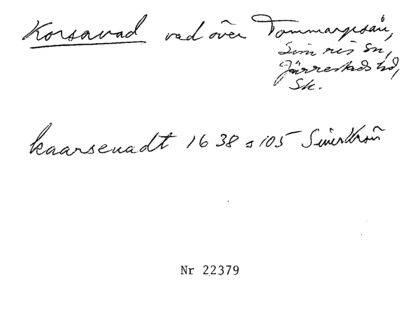 Korsavad vad över Tommarpsån,
Simris sn,
Järrestads hd,
Sk.
kaarsevadt 1638 s 105 SimrKrön
Nr 22379